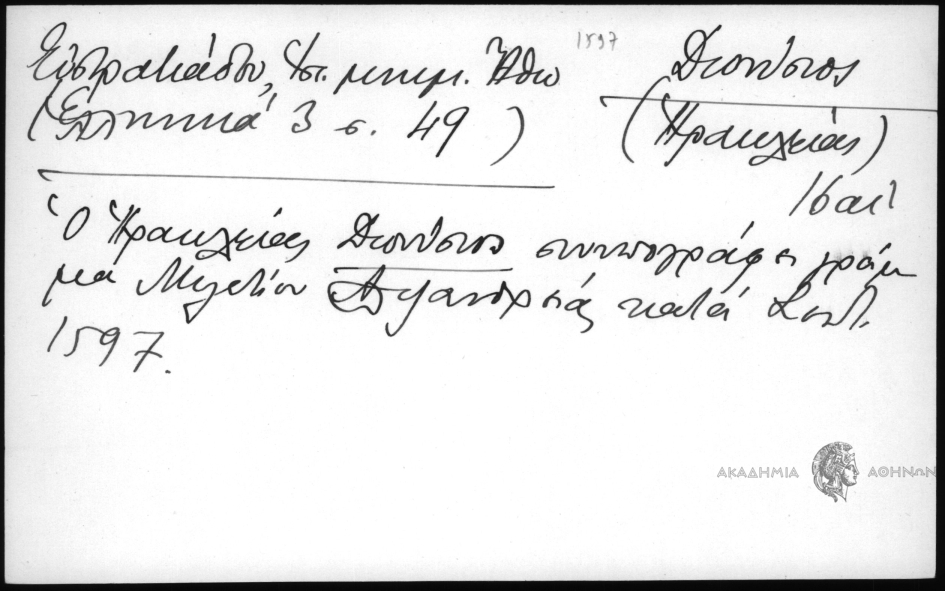 1597
Εὐστρατιάδου, Ἱστ. μνημ. Ἄθω
(Ἑλληνικά 3 σ. 49)
Διονύσιος
(Ἡρακλείας)
16 αἰ
Ὁ Ἡρακλείας Διονύσιος συνυπογράφει γράμ
μα Μελετίου Ἀλεξανδρείας κατά Σεπτ.
1597.
ΑΚΑΔΗΜΙΑ ΑΘΗΝΩΝ